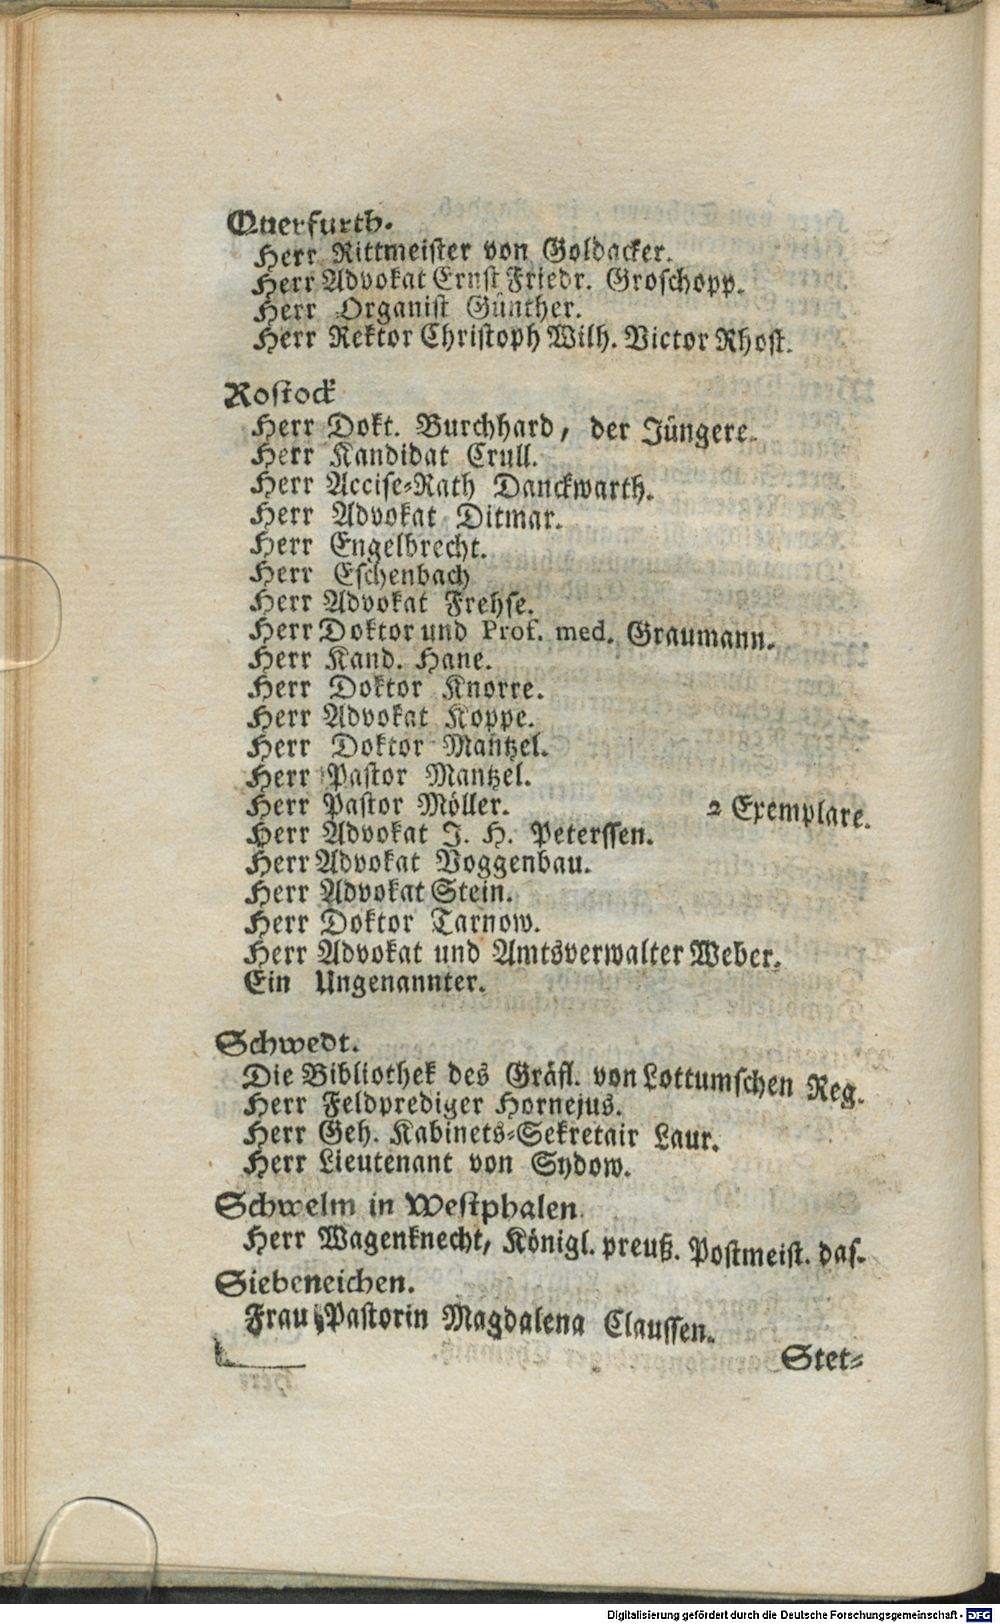 Querfurth.
Herr Rittmeister von Goldacker.
Herr Advokat Ernst Friedr. Groschopp.
Herr Organist Günther.
Herr Rektor Christoph Wilh. Victor Rhost.
Rostock
Herr Dokt. Burchhard, der Jüngere.
Herr Kandidat Crull.
Herr Accise-Rath Danckwarth.
Herr Advokat Ditmar.
Herr Engelbrecht.
Herr Eschenbach
Herr Advokat Frehse.
Herr Doktor und Prof. med. Graumann.
Herr Kand. Hane.
Herr Doktor Knorre.
Herr Advokat Koppe.
Herr Doktor Mantzel.
Herr Pastor Mantzel.
Herr Pastor Möller. 2 Exemplare.
Herr Advokat J. H. Peterssen.
Herr Advokat Voggenbau.
Herr Advokat Stein.
Herr Doktor Tarnow.
Herr Advokat und Amtsverwalter Weber.
Ein Ungenannter.
Schwedt.
Die Bibliothek des Gräfl. von Lottumschen Reg.
Herr Feldprediger Hornejus.
Herr Geh. Kabinets-Sekretair Laur.
Herr Lieutenant von Sydow.
Schwelm in Westphalen.
Herr Wagenknecht, Königl. preuß. Postmeist. das.
Siebeneichen.
Frau Pastorin Magdalena Claussen.
Stet-
Digitalisierung gefördert durch die Deutsche Forschungsgemeinschaft - DFG